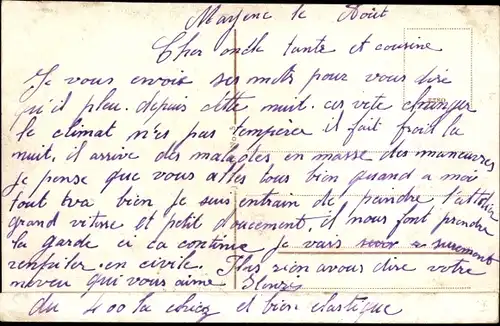 Mayence le Août
Cher oncle tante et cousine
Je vous envoie ses mots pour vous dire
qu'il pleu. depuis cette nuit. ces vete changer
le climat n'es pas tempèrer il fait frait la
nuit, il arrive des malades en masse des maneuvres
je pense que vous alles tous bien quand a moi
tout tva bien je suis entrain de prendre
grand vitesse et petit doucement, il nous font prendre
la garde ci ca continue je vais surement
renfailer en civile. Plus rien avous dire votre
neveu qui vous aime
du 400 la chiez et bien elastique